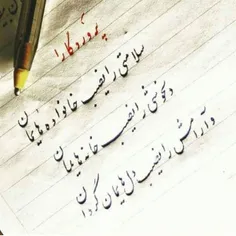 پروردگارا
سلامتی را نصیب خانواده هایمان
دلخوشی را نصیب خانه هایمان
و آرامش را نصیب دل هایمان گردان